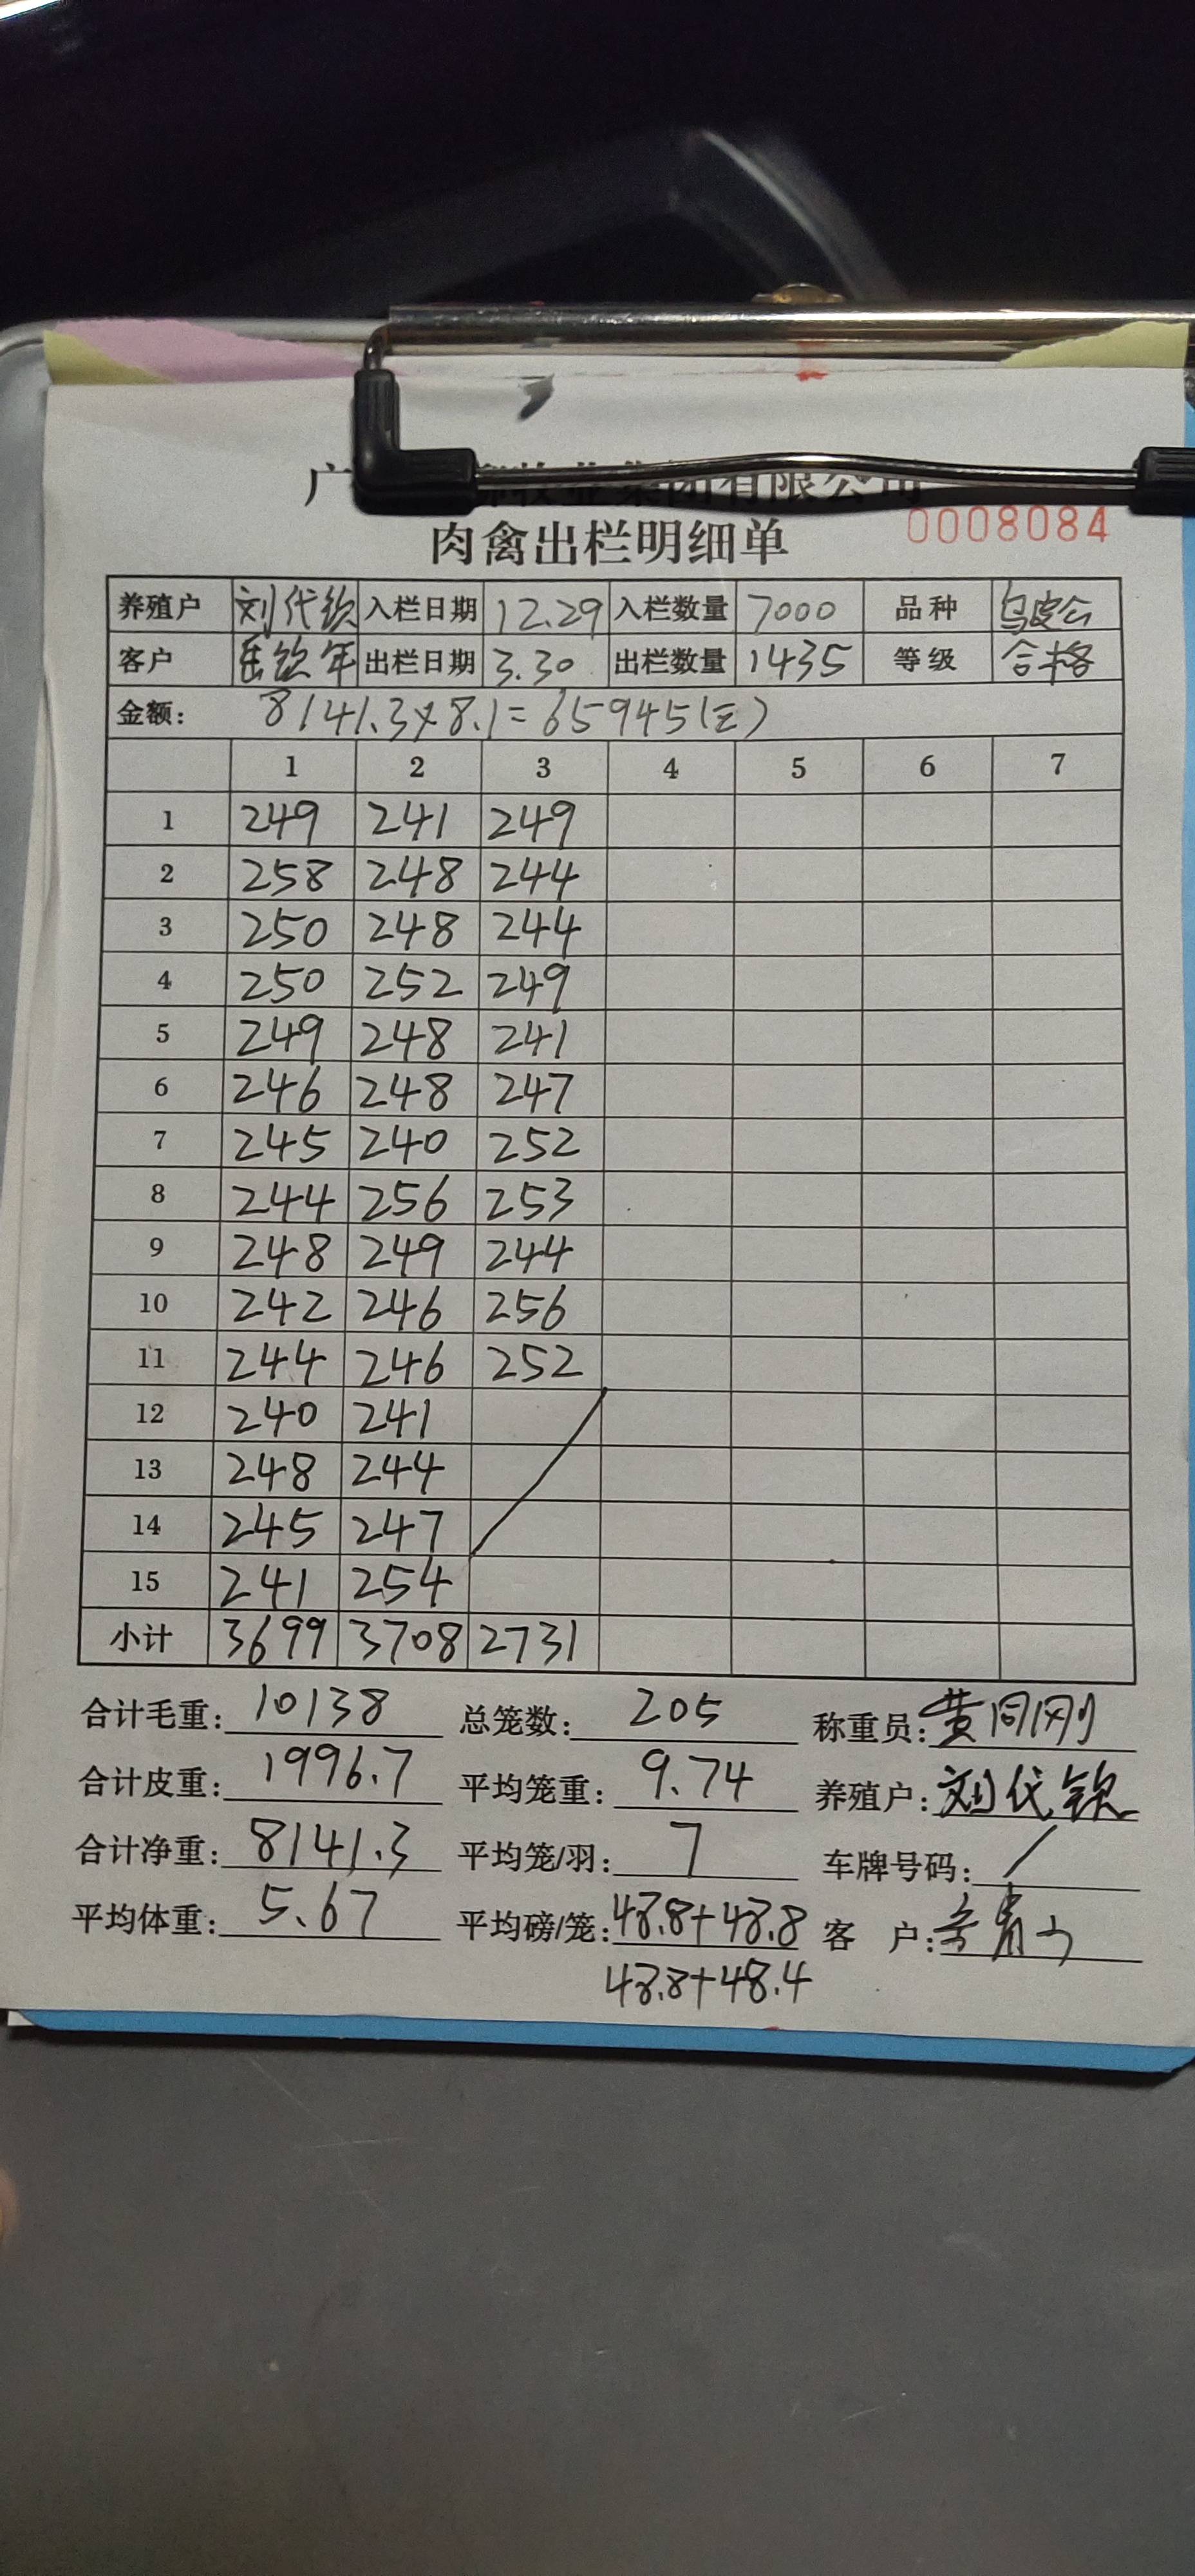 广 牧业集团有限公司
肉禽出栏明细单 0008084
养殖户 刘代钦 入栏日期 12.29 入栏数量 7000 品种 乌皮公
客户 钦年 出栏日期 3.30 出栏数量 1435 等级 合格
金额: 8141.3×8.1=65945(元)
1 2 3 4 5 6 7
1 249 241 249
2 258 248 244
3 250 248 244
4 250 252 249
5 249 248 241
6 246 248 247
7 245 240 252
8 244 256 253
9 248 249 244
10 242 246 256
11 244 246 252
12 240 241
13 248 244
14 245 247
15 241 254
小计 3699 3708 2731
合计毛重: 10138 总笼数: 205 称重员: 黄同刚
合计皮重: 1996.7 平均笼重: 9.74 养殖户: 刘代钦
合计净重: 8141.3 平均笼/羽: 7 车牌号码: /
平均体重: 5.67 平均磅/笼: 48.8+48.8 客 户:
48.8+48.4